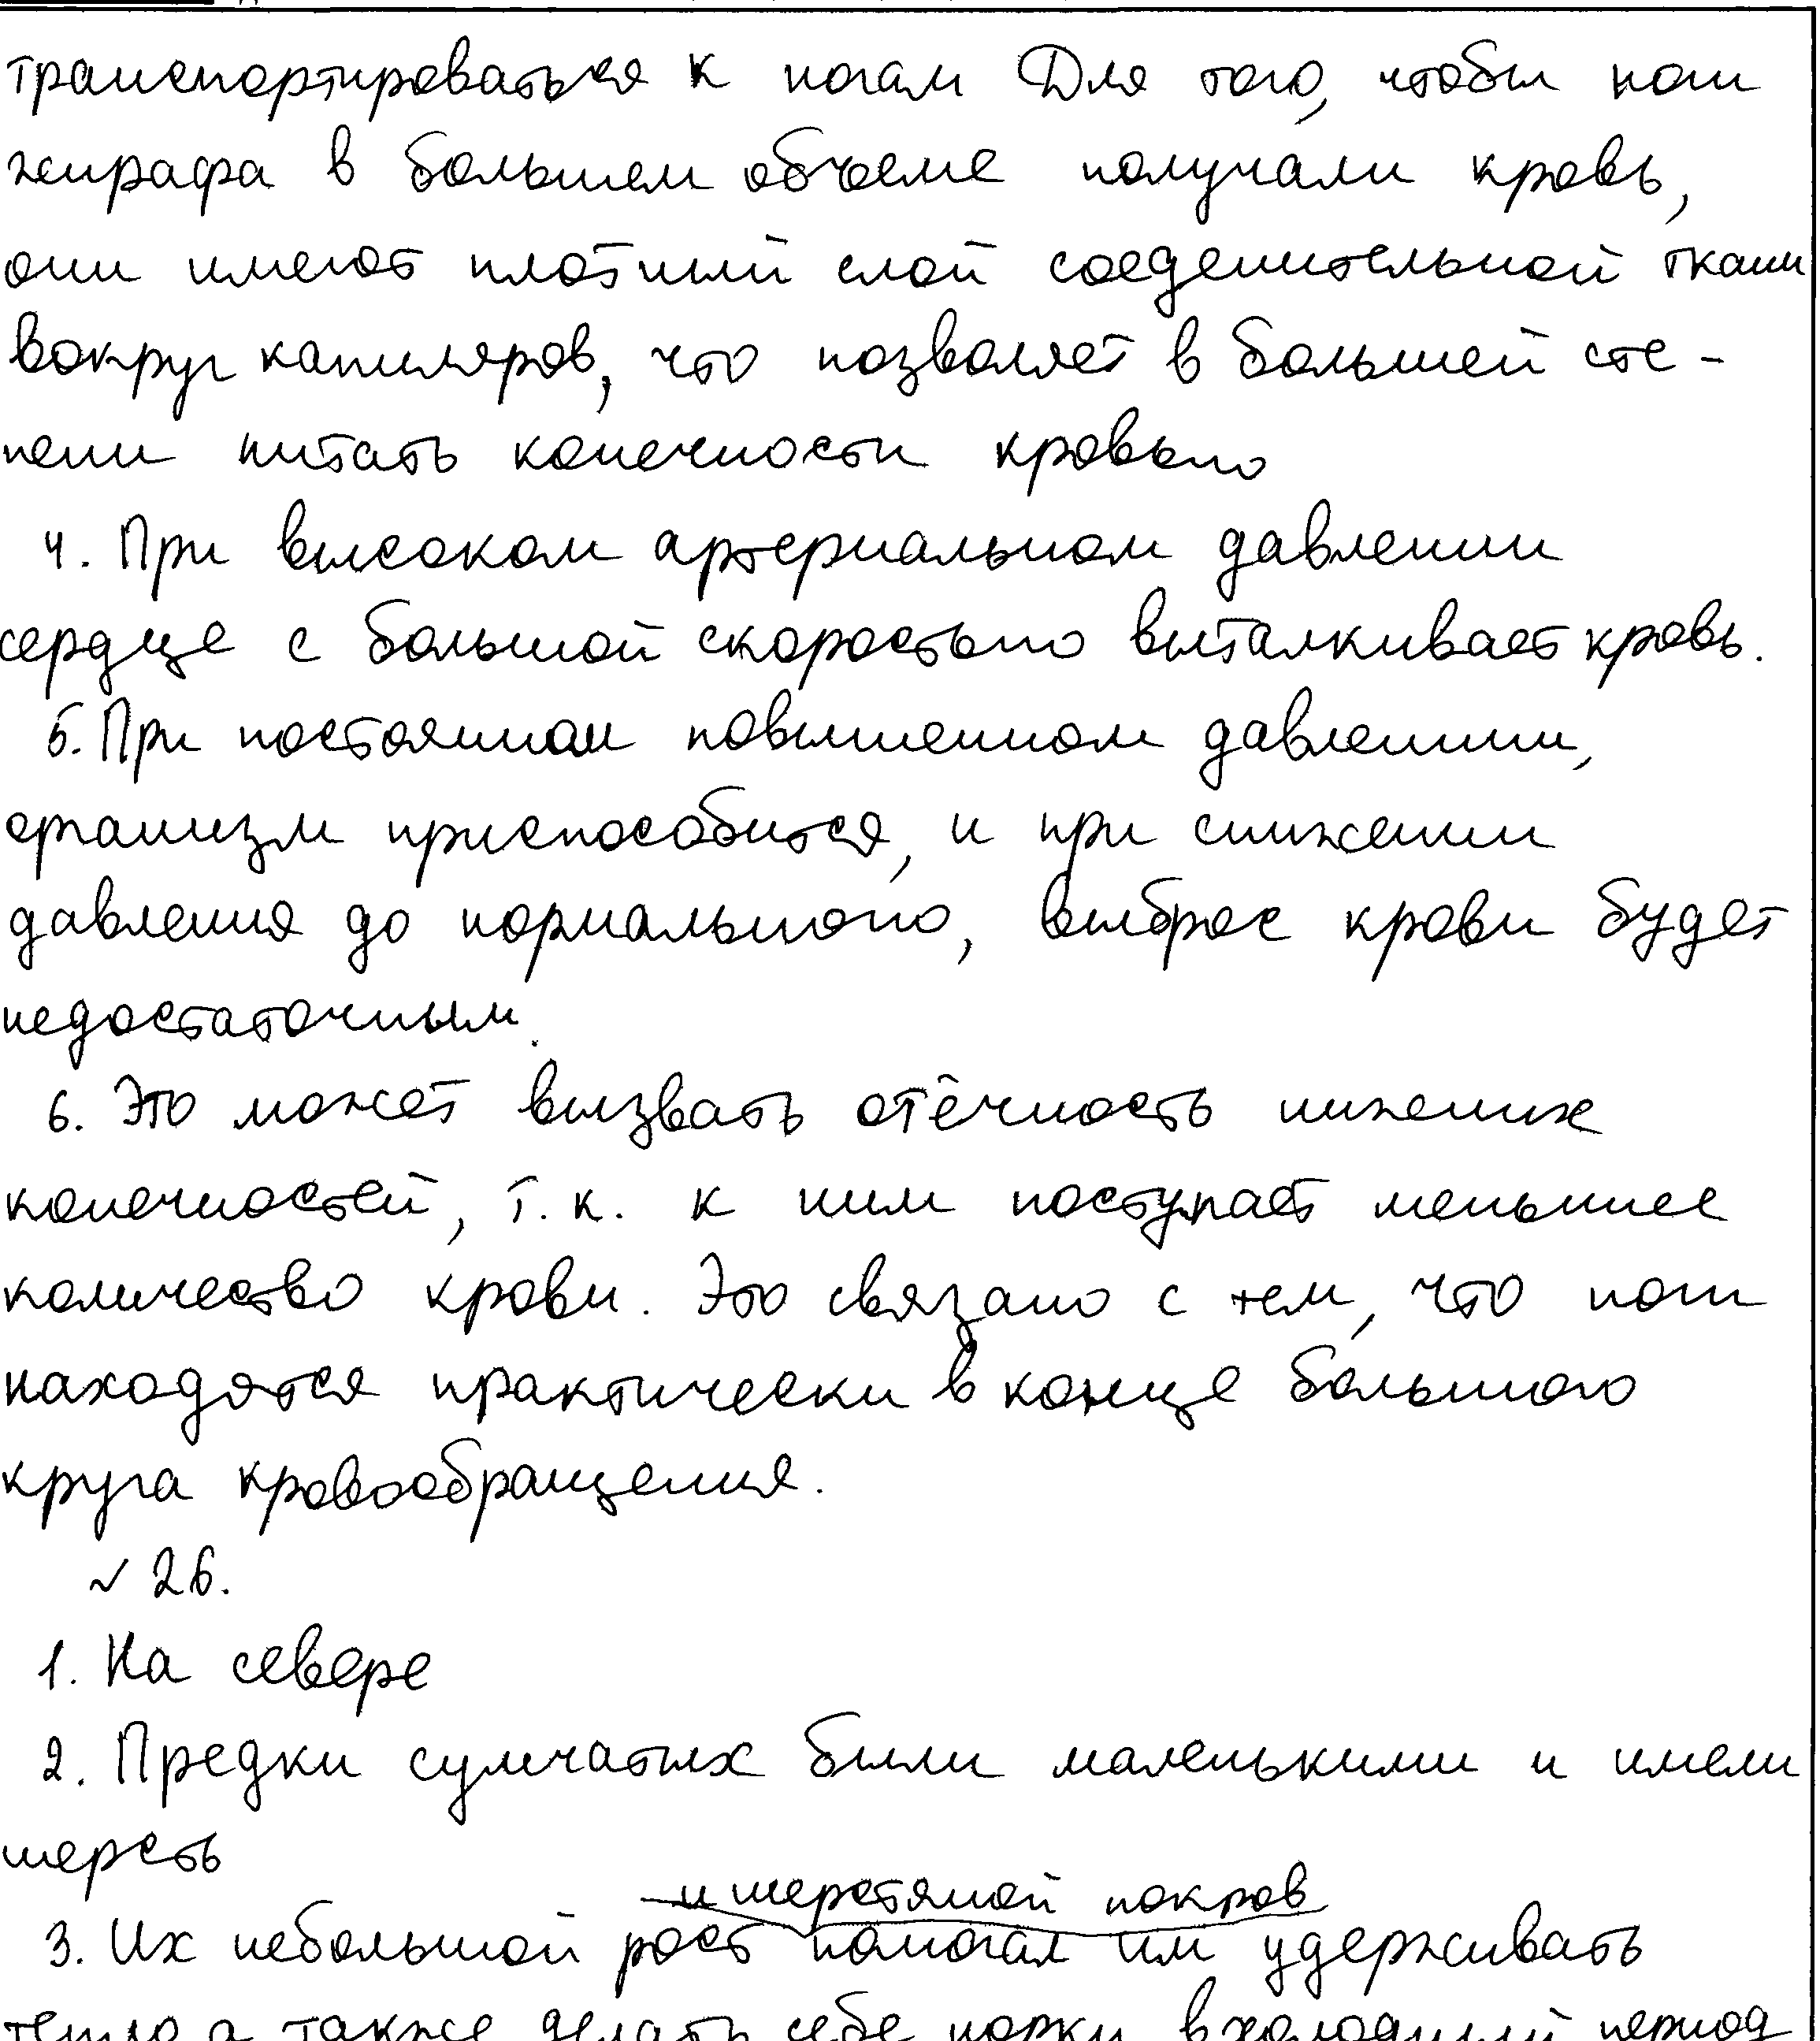 транспортироваться к ногам Для того, чтобы ноги
жирафа в большем объеме получали кровь,
они имеют плотный слой соеденительной ткани
вокруг капиляров, что позволяет в большей сте-
пени питать конечности кровью
4. При высоком артериальном давлении
сердце с большой скоростью выталкивает кровь.
5. При постоянном повышенном давлении,
организм приспособится, и при снижении
давления до нормального, выброс крови будет
недостаточным.
6. Это может вызвать отёчность нижних
конечностей, т.к. к ним поступает меньшее
количество крови. Это связано с тем, что ноги
находятся практически в конце большого
круга кровообращения.
√ 26.
1. На севере
2. Предки сумчатых были маленькими и имели
шерсть
и шерстяной покров
3. Их небольшой рост помогал им удерживать
тепло а также делать себе норки в холодный период